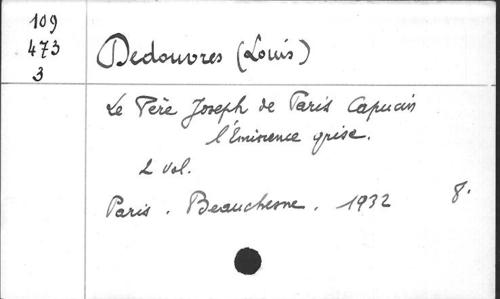 109
473
3
Dedouvres (Louis)
Le Père Joseph de Paris Capucin
l'Eminence grise.
2 vol.
Paris. Beauchesne. 1932 8.